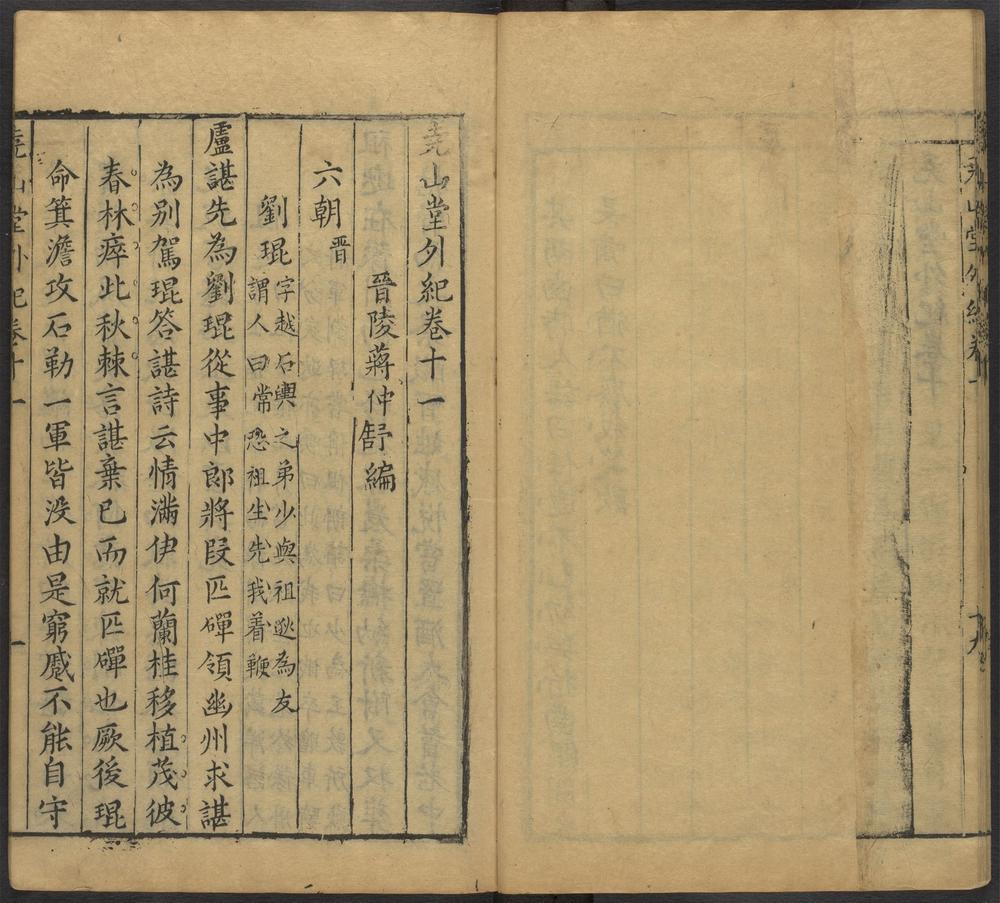 堯山堂外紀卷十一
晉陵蔣仲舒編
六朝 晋
劉琨 字越石輿之弟少與祖逖為友
謂人曰常恐祖生先我着鞭
盧諶先為劉琨從事中郎將叚匹磾領幽州求諶
為別駕琨答諶詩云情滿伊何蘭桂移植茂彼
春林瘁此秋棘言諶棄已而就匹磾也厥後琨
命箕澹攻石勒一軍皆没由是窮蹙不能自守
堯山堂外紀卷十一
一